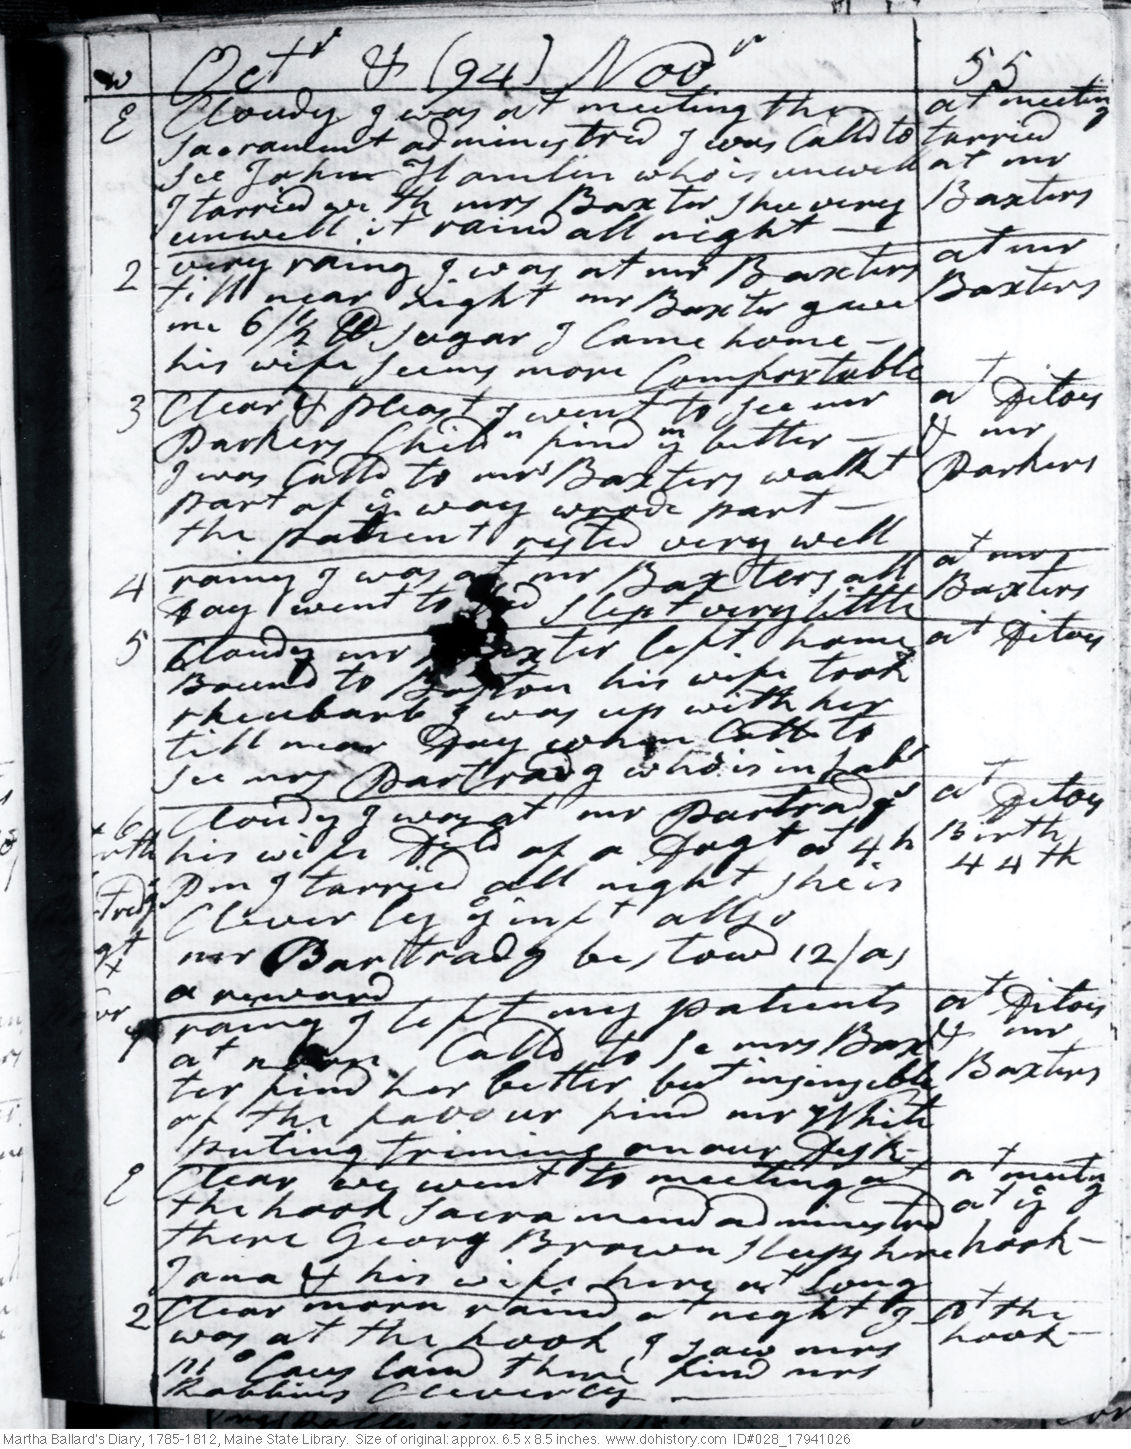 w Octr & (94) Novr 55
E Cloudy I was at meeting the
sacrament administred I was Calld to
see John Hamlin who is unwell
I tarried with mrs Baxter shee very
unwell it raind all night —
at meeting
tarried
at mr
Baxters
2 very rainy I was at mr Baxters
till near night mr Baxter gave
me 6/½ lb sugar I Came home —
his wife seems more Comfortable
at mr
Baxters
3 Clear & pleast I went to see mr
Parkers Childn find ym better —
I was Calld to mrs Baxters walkt
part of ye way wrode part —
the patient rested very well
at Ditoes
& mr
Parkers
4 rainy I was at mr Baxters all
Day went to Bed slept very little
at mrs
Baxters
5 Cloudy mr Baxter left home
Bound to Boston his wife took
rheubarb I was up with her
till near Day when Calld to
see mrs Partradg who is in Labr
at Ditoes
6 Cloudy I was at mr Partradgs
his wife Dld of a Dagt at 4 h
Pm I tarried all night she is
Cleverley ye inft allso
mr Bartradg bestowd 12/ as
a reward
at Ditoes
Birth
44th
7 rainy I left my patients
at noon. Calld to se mrs Bax
ter find her better but insensible
of the favour find mr White
puting triming on our Desk —
at Ditoes
& mr
Baxters
E Clear we went to meeting at
the hook sacrament administred
there Georg Brown sleeps here
Jona & his wife here at Long
at meeting
at ye
hook —
2 Clear morn raind at night I
was at the hook I saw mrs
mc Causland there find mrs
Robbins Cleverly —
at the
hook —
Martha Ballard's Diary, 1785-1812, Maine State Library. Size of original: approx. 6.5 x 8.5 inches. www.dohistory.com ID#028_17941026